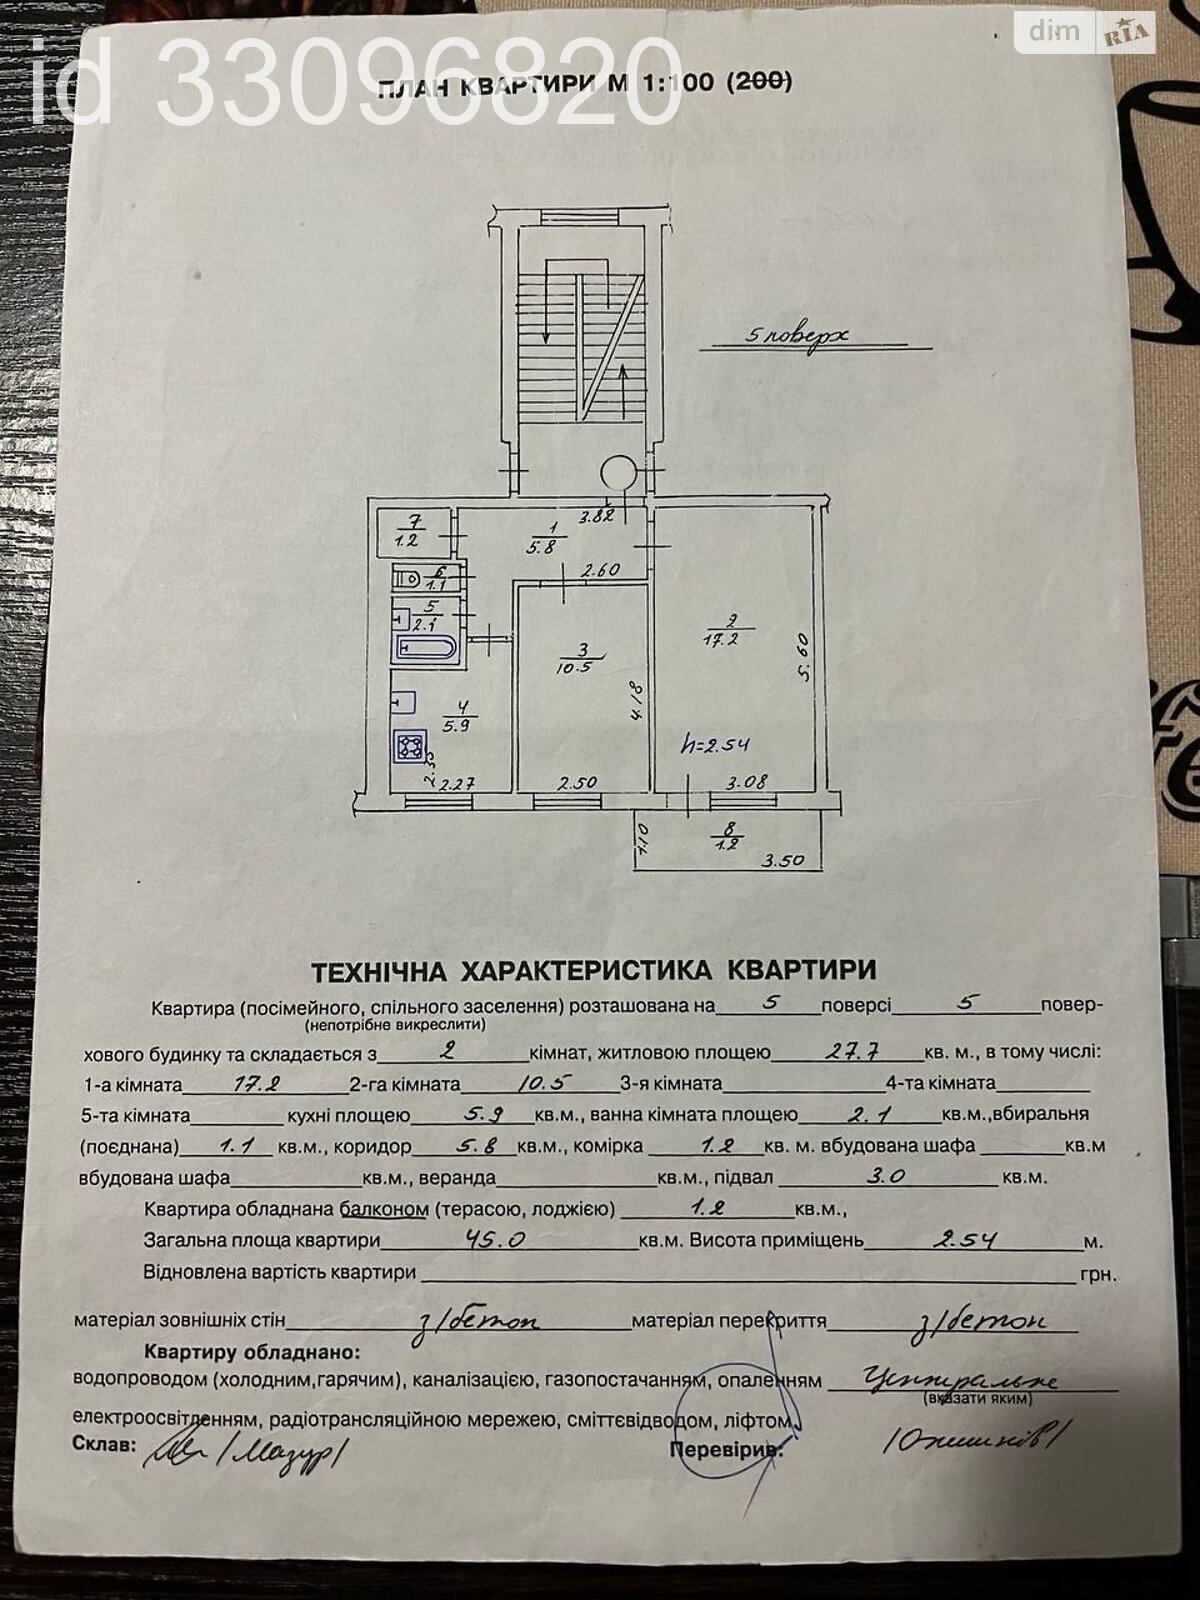 id 33096820
dim RIA
ПЛАН КВАРТИРИ М 1:100 (200)
5 поверх
3.82
7
1.2
1
5.8
2.60
6
1.1
5
2.1
2
17.2
3
10.5
5.60
4.18
4
5.9
h=2.54
2.35
2.27
2.50
3.08
1.10
8
1.2
3.50
ТЕХНІЧНА ХАРАКТЕРИСТИКА КВАРТИРИ
Квартира (посімейного, спільного заселення) розташована на 5 поверсі 5 повер-
(непотрібне викреслити)
хового будинку та складається з 2 кімнат, житловою площею 27.7 кв. м., в тому числі:
1-а кімната 17.2 2-га кімната 10.5 3-я кімната 4-та кімната
5-та кімната кухні площею 5.9 кв.м., ванна кімната площею 2.1 кв.м.,вбиральня
(поєднана) 1.1 кв.м., коридор 5.8 кв.м., комірка 1.2 кв. м. вбудована шафа кв.м
вбудована шафа кв.м., веранда кв.м., підвал 3.0 кв.м.
Квартира обладнана балконом (терасою, лоджією) 1.2 кв.м.,
Загальна площа квартири 45.0 кв.м. Висота приміщень 2.54 м.
Відновлена вартість квартири грн.
матеріал зовнішніх стін з/бетон матеріал перекриття з/бетон
Квартиру обладнано:
водопроводом (холодним,гарячим), каналізацією, газопостачанням, опаленням Центральне
(вказати яким)
електроосвітленням, радіотрансляційною мережею, сміттєвідводом, ліфтом.
Склав: /Мазур/ Перевірив: